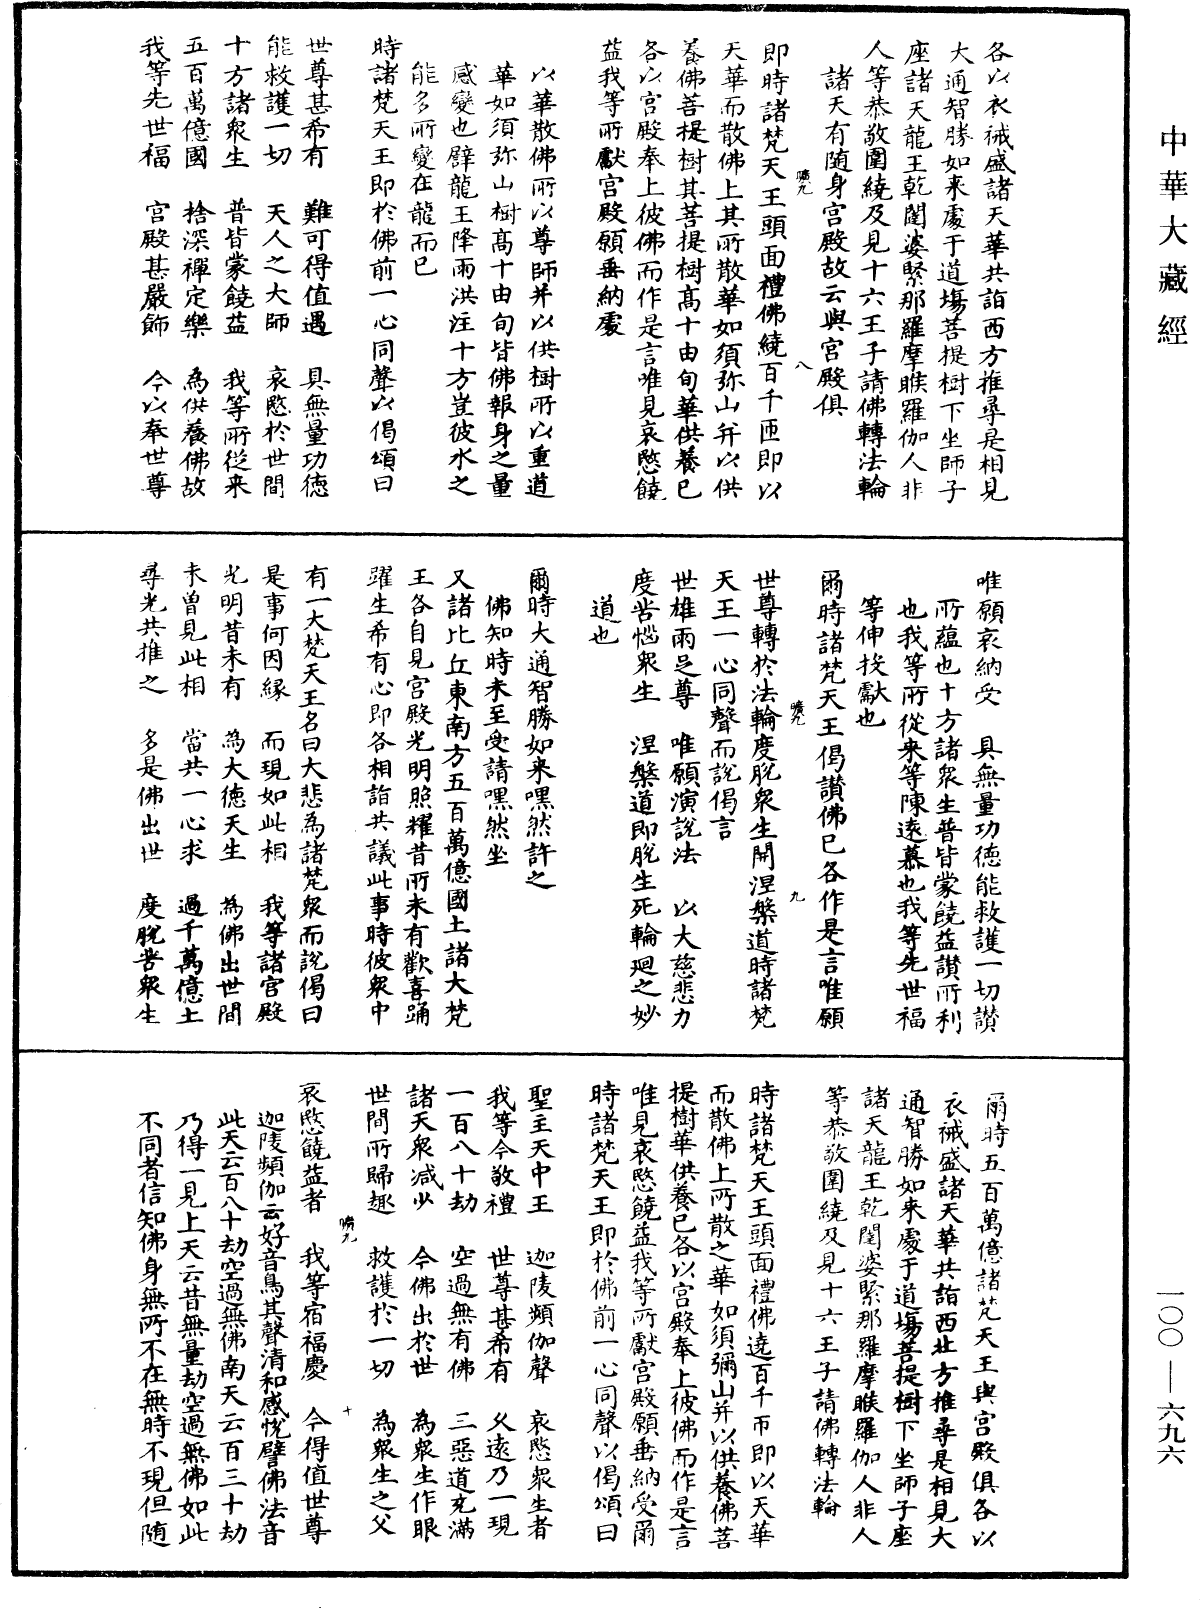 中華大藏經
各以衣祴盛諸天華共詣西方推尋是相見
大通智勝如来處于道場菩提樹下坐師子
座諸天龍王乾闥婆緊那羅摩睺羅伽人非
人等恭敬圍繞及見十六王子請佛轉法輪
諸天有随身宫殿故云與宫殿俱
八
即時諸梵天王頭面禮佛繞百千匝即以
天華而散佛上其所散華如須弥山并以供
養佛菩提樹其菩提樹髙十由旬華供養已
各以宫殿奉上彼佛而作是言唯見哀愍饒
益我等所獻宫殿願垂納處
以華散佛所以尊師并以供樹所以重道
華如須弥山樹髙十由旬皆佛報身之量
感變也辟龍王降雨洪注十方豈彼水之
能多所變在龍而已
時諸梵天王即於佛前一心同聲以偈頌曰
世尊甚希有　難可得值遇　具無量功德
能救護一切　天人之大師　哀愍於世間
十方諸衆生　普皆蒙饒益　我等所從来
五百萬億國　捨深禪定樂　為供養佛故
我等先世福　宫殿甚嚴飾　今以奉世尊
唯願哀納受　具無量功德能救護一切讃
所蘊也十方諸衆生普皆蒙饒益讃所利
也我等所從来等陳遠慕也我等先世福
等伸投獻也
爾時諸梵天王偈讃佛已各作是言唯願
九
世尊轉於法輪度脫衆生開涅槃道時諸梵
天王一心同聲而說偈言
世雄兩足尊　唯願演說法　以大慈悲力
度苦惱衆生　涅槃道即脫生死輪廻之妙
道也
爾時大通智勝如来嘿然許之
佛知時未至受請嘿然坐
又諸比丘東南方五百萬億國土諸大梵
王各自見宫殿光明照耀昔所未有歡喜踊
躍生希有心即各相詣共議此事時彼衆中
有一大梵天王名曰大悲為諸梵衆而說偈曰
是事何因縁　而現如此相　我等諸宫殿
光明昔未有　為大德天生　為佛出世間
未曾見此相　當共一心求　過千萬億土
尋光共推之　多是佛出世　度脫苦衆生
爾時五百萬億諸梵天王與宫殿俱各以
衣祴盛諸天華共詣西北方推尋是相見大
通智勝如来處于道場菩提樹下坐師子座
諸天龍王乾闥婆緊那羅摩睺羅伽人非人
等恭敬圍繞及見十六王子請佛轉法輪
時諸梵天王頭面禮佛遶百千帀即以天華
而散佛上所散之華如須彌山并以供養佛菩
提樹華供養已各以宫殿奉上彼佛而作是言
唯見哀愍饒益我等所獻宫殿願垂納受爾
時諸梵天王即於佛前一心同聲以偈頌曰
聖主天中王　迦陵頻伽聲　哀愍衆生者
我等今敬禮　世尊甚希有　久遠乃一現
一百八十劫　空過無有佛　三惡道充滿
諸天衆减少　今佛出於世　為衆生作眼
世間所歸趣　救護於一切　為衆生之父
哀愍饒益者　我等宿福慶　今得值世尊
十
迦陵頻伽云好音鳥其聲清和感悅譬佛法音
此天云百八十劫空過無佛南天云百三十劫
乃得一見上天云昔無量劫空過無佛如此
不同者信知佛身無所不在無時不現但随
一〇〇—六九六